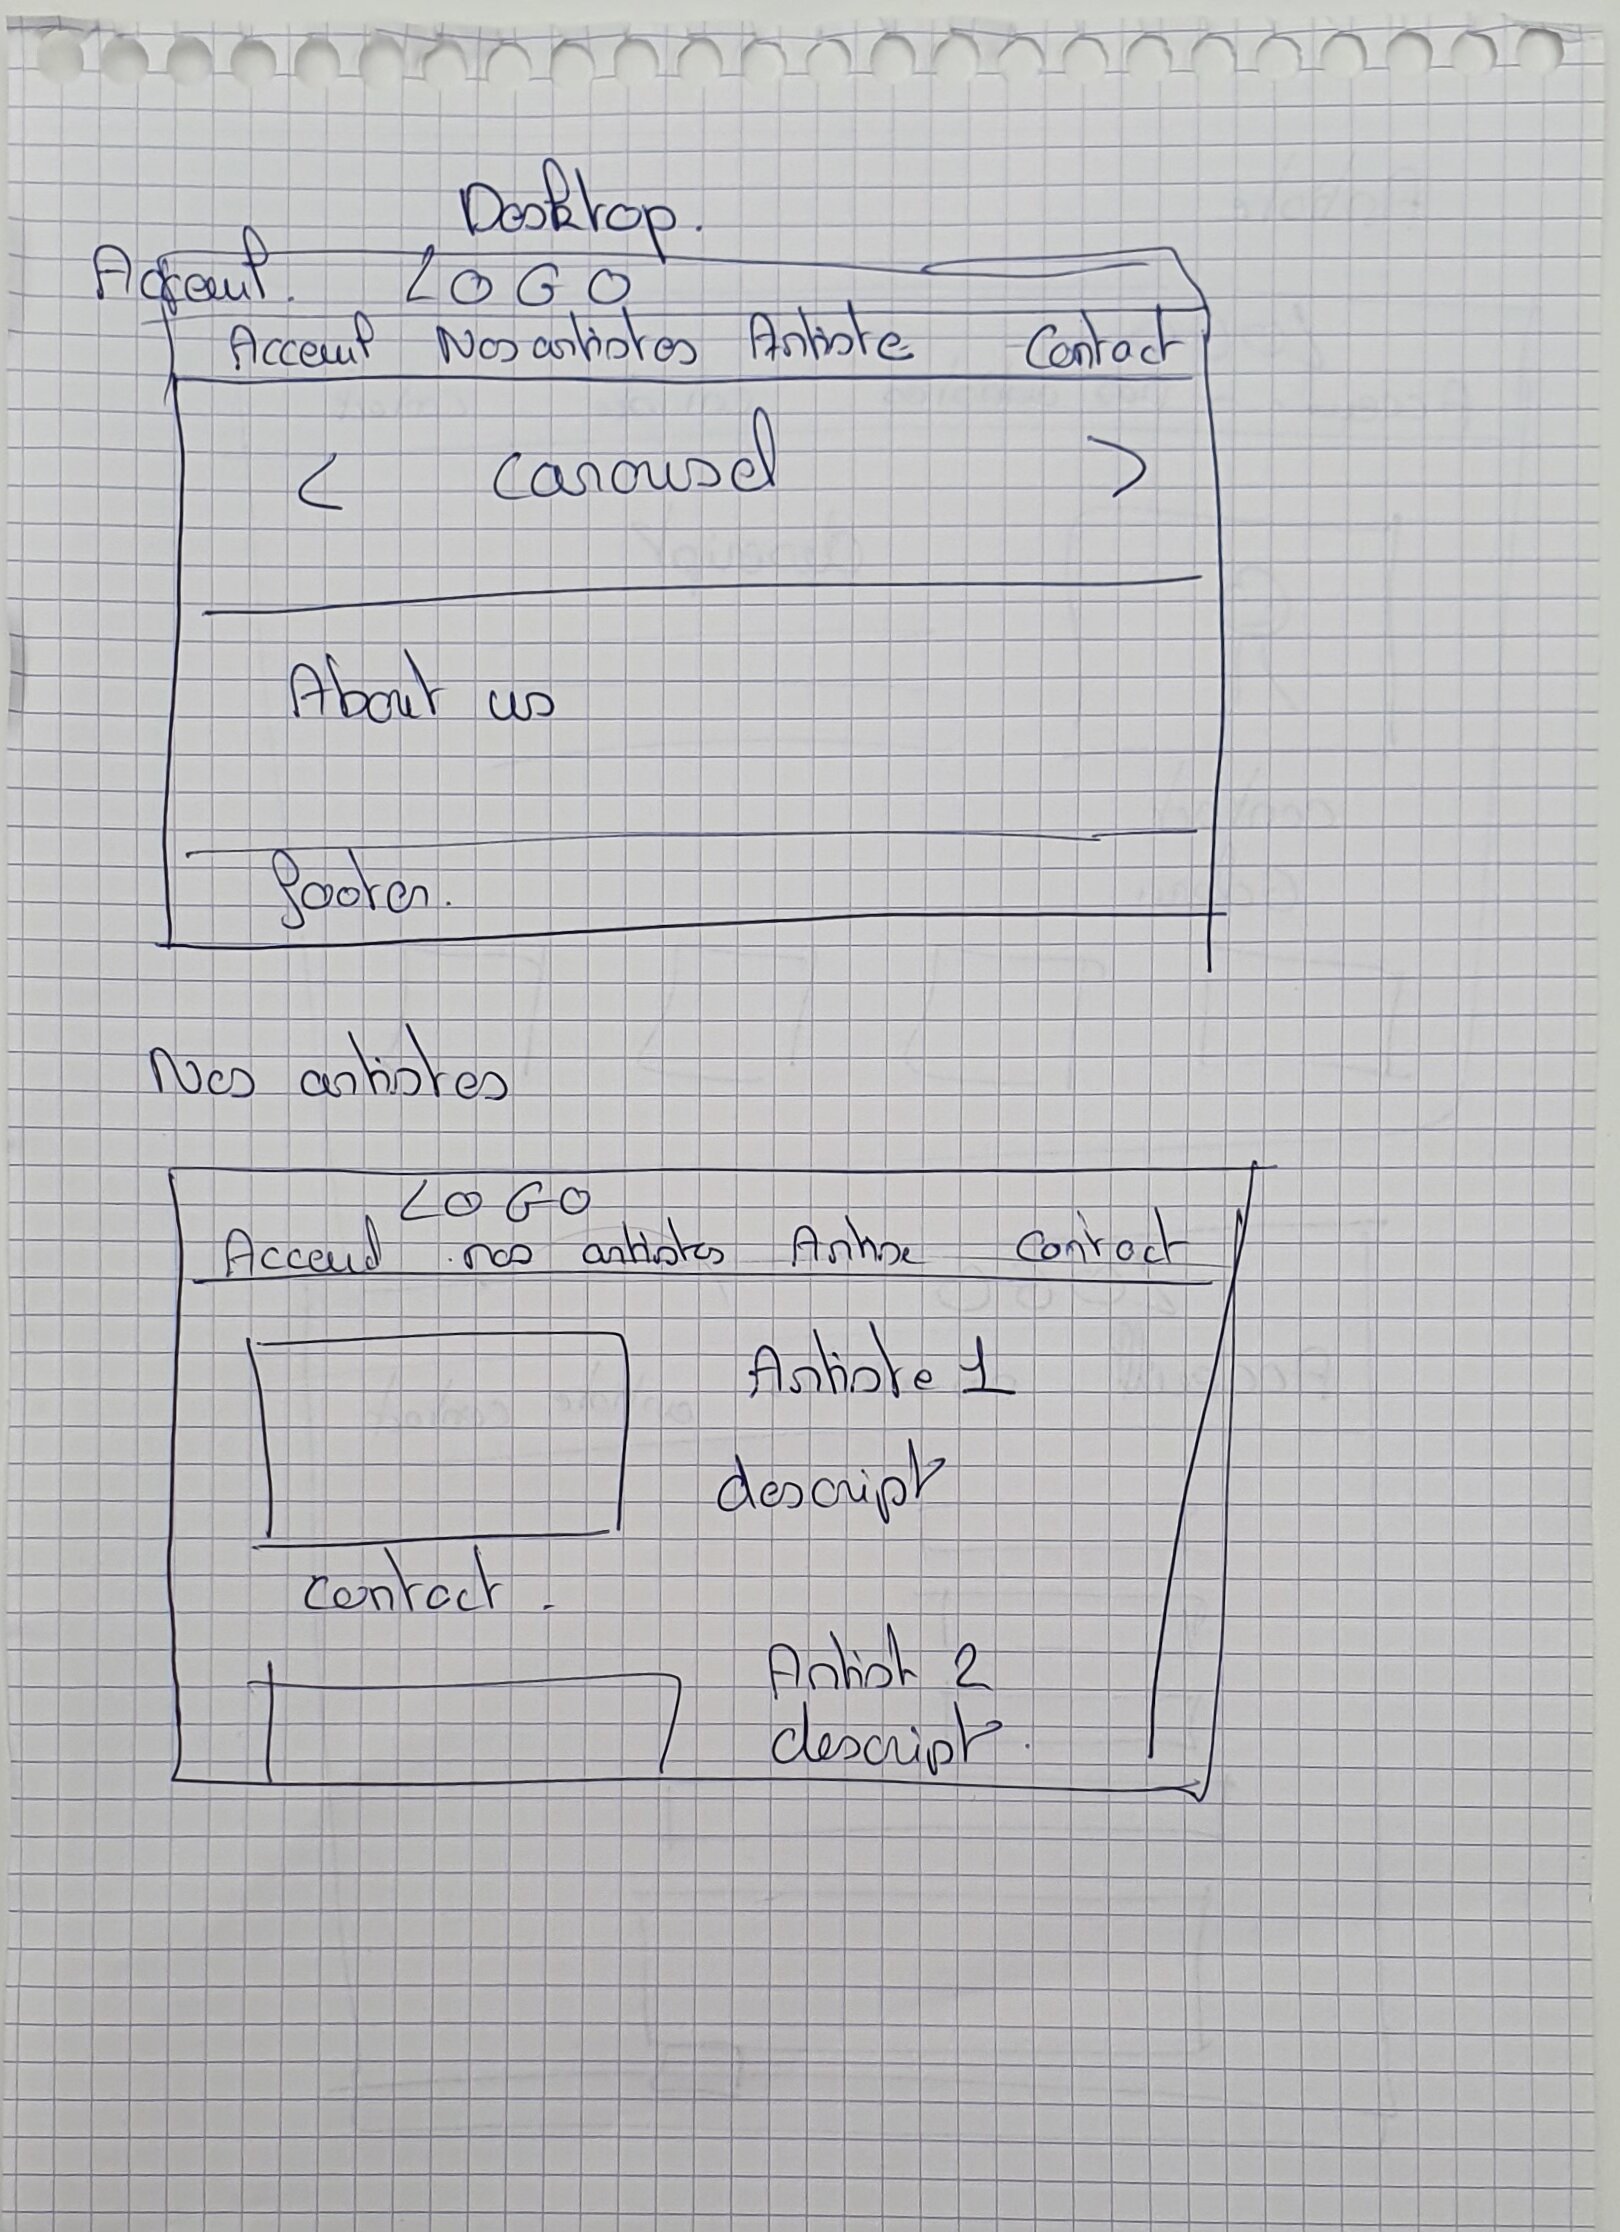 Desktop.
Acceuil. LOGO
Acceuil Nos artistes Artiste Contact
< carousel >
About us
footer.
Nos artistes
LOGO
Acceuil nos artistes Artise contact
Artiste 1
descript
contact.
Artist 2
descript.